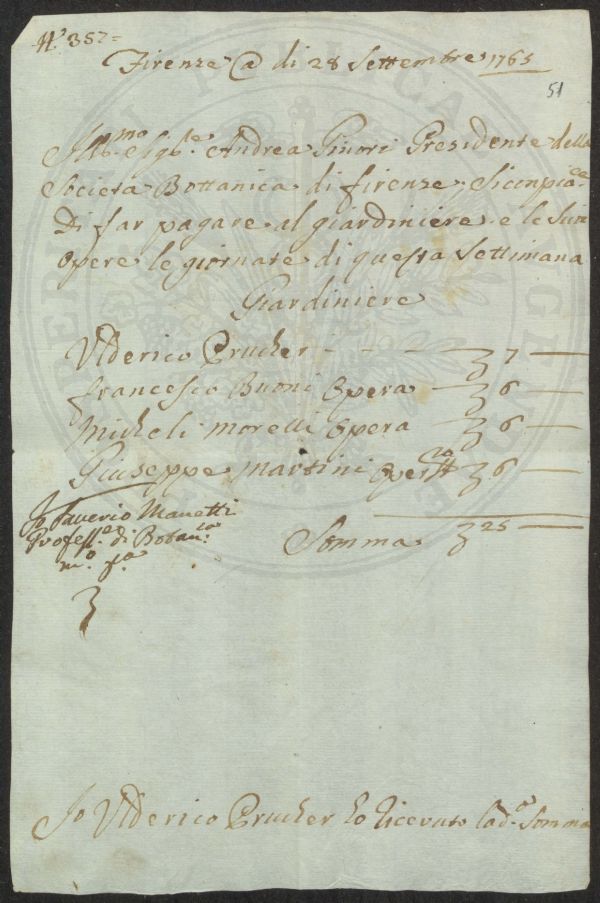 N.º 357=
Firenze @ di 28 Settembre 1765
51
Ill.mo Sig.le Andrea Ginori Presidente della
Società Bottanica di firenze, Si conpia.ce
Di far pagare al giardiniere e le
opere le giornate di questa Settimana
Giardiniere
Ulderico Prucher - - - 7 —
francesco Buoni Opera — 6 —
Micheli Morelli Opera — 6 —
Giuseppe Martini Opera 6 —
Somma 25 —
Io Saverio Manetti
Profess.e di Botan.ca
m.º p.ª
Io Ulderico Prucher ho Ricevuto la d.a Somma